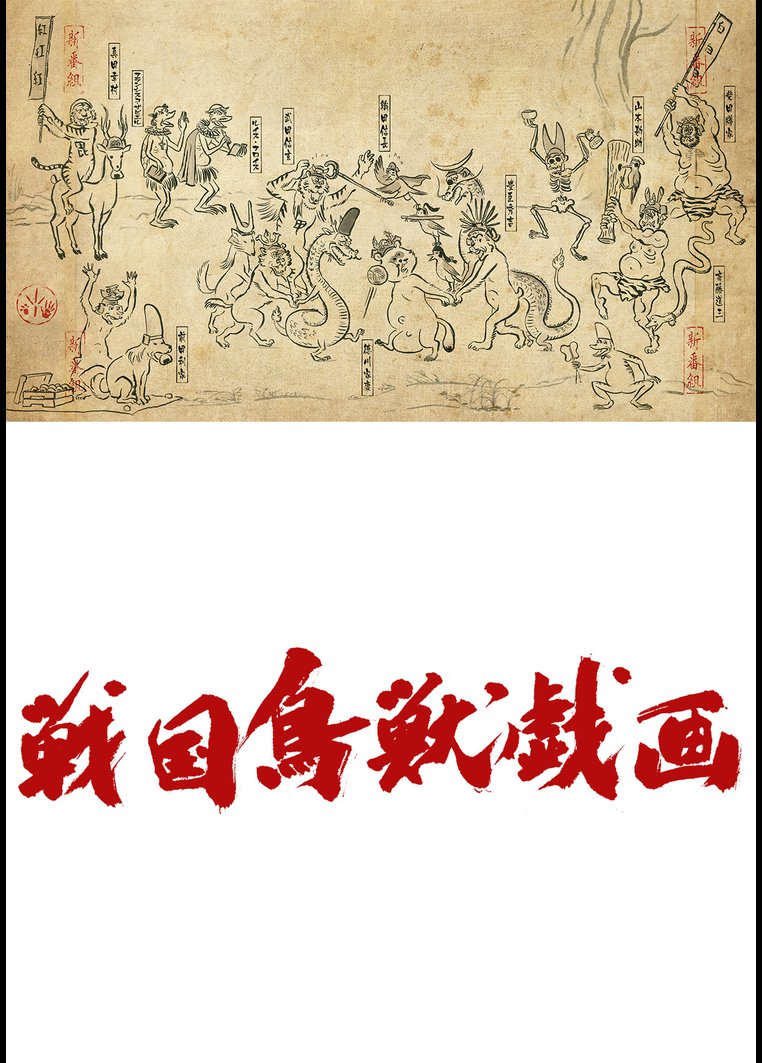 紅紅紅
新番組
真田幸村
フランシスコ・ザビエル
ルイス・フロイス
武田信玄
織田信長
豊臣秀吉
山本勘助
新番組
柴田勝家
斎藤道三
新番組
前田利家
徳川家康
新番組
戦国鳥獣戯画